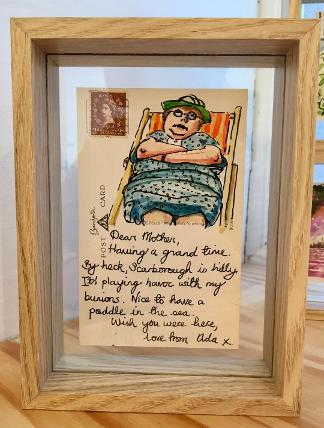 POST CARD
Dear Mother,
Having a grand time.
By heck, Scarborough is hilly
It's playing havoc with my
bunions. Nice to have a
paddle in the sea.
Wish you were here,
love from Ada x